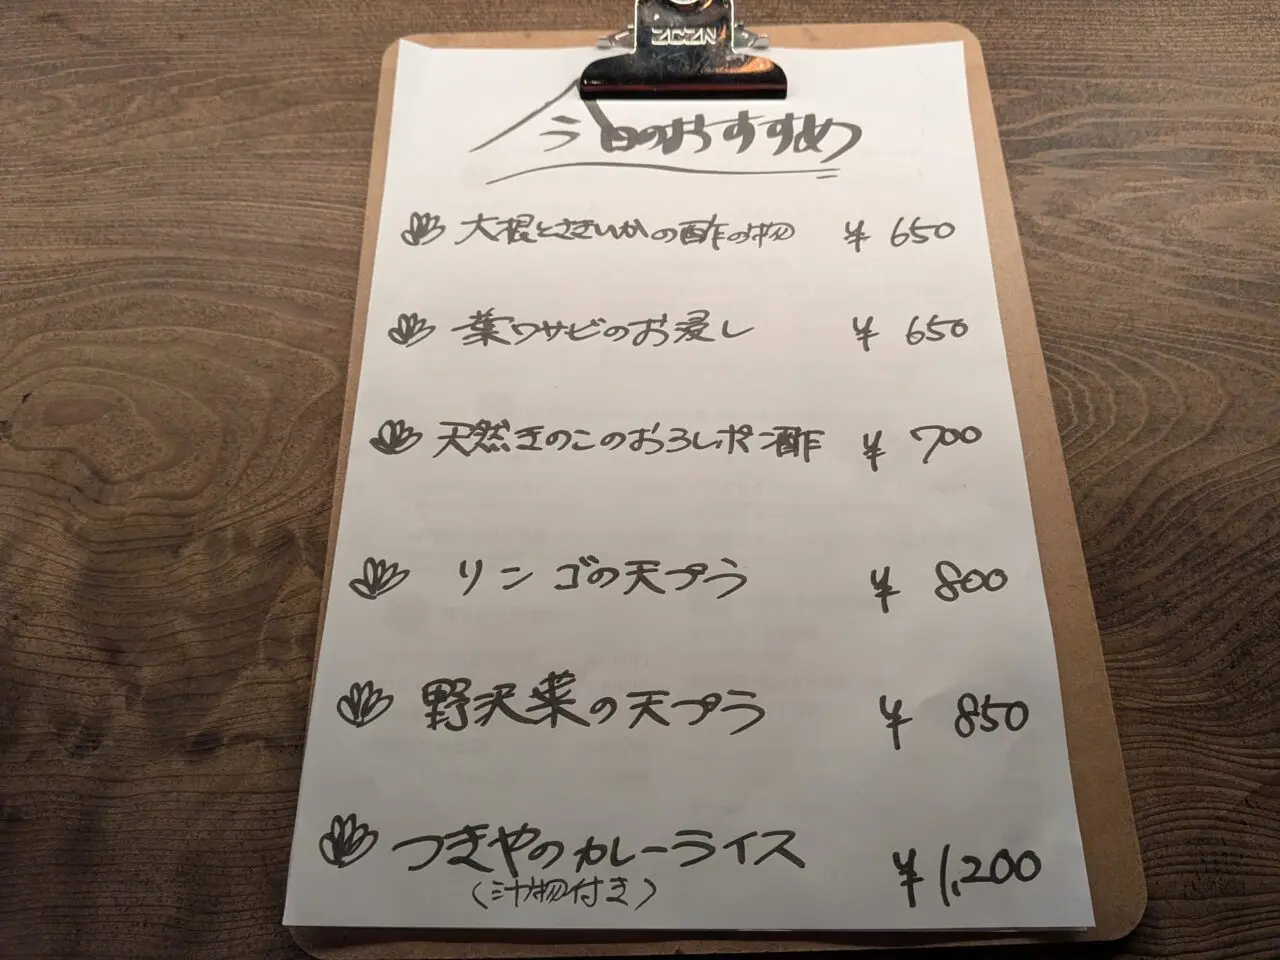 今日のおすすめ
大根とさきいかの酢の物 ¥650
葉ワサビのお浸し ¥650
天然きのこのおろしポン酢 ¥700
リンゴの天プラ ¥800
野沢菜の天プラ ¥850
つきやのカレーライス ¥1,200
(汁物付き)